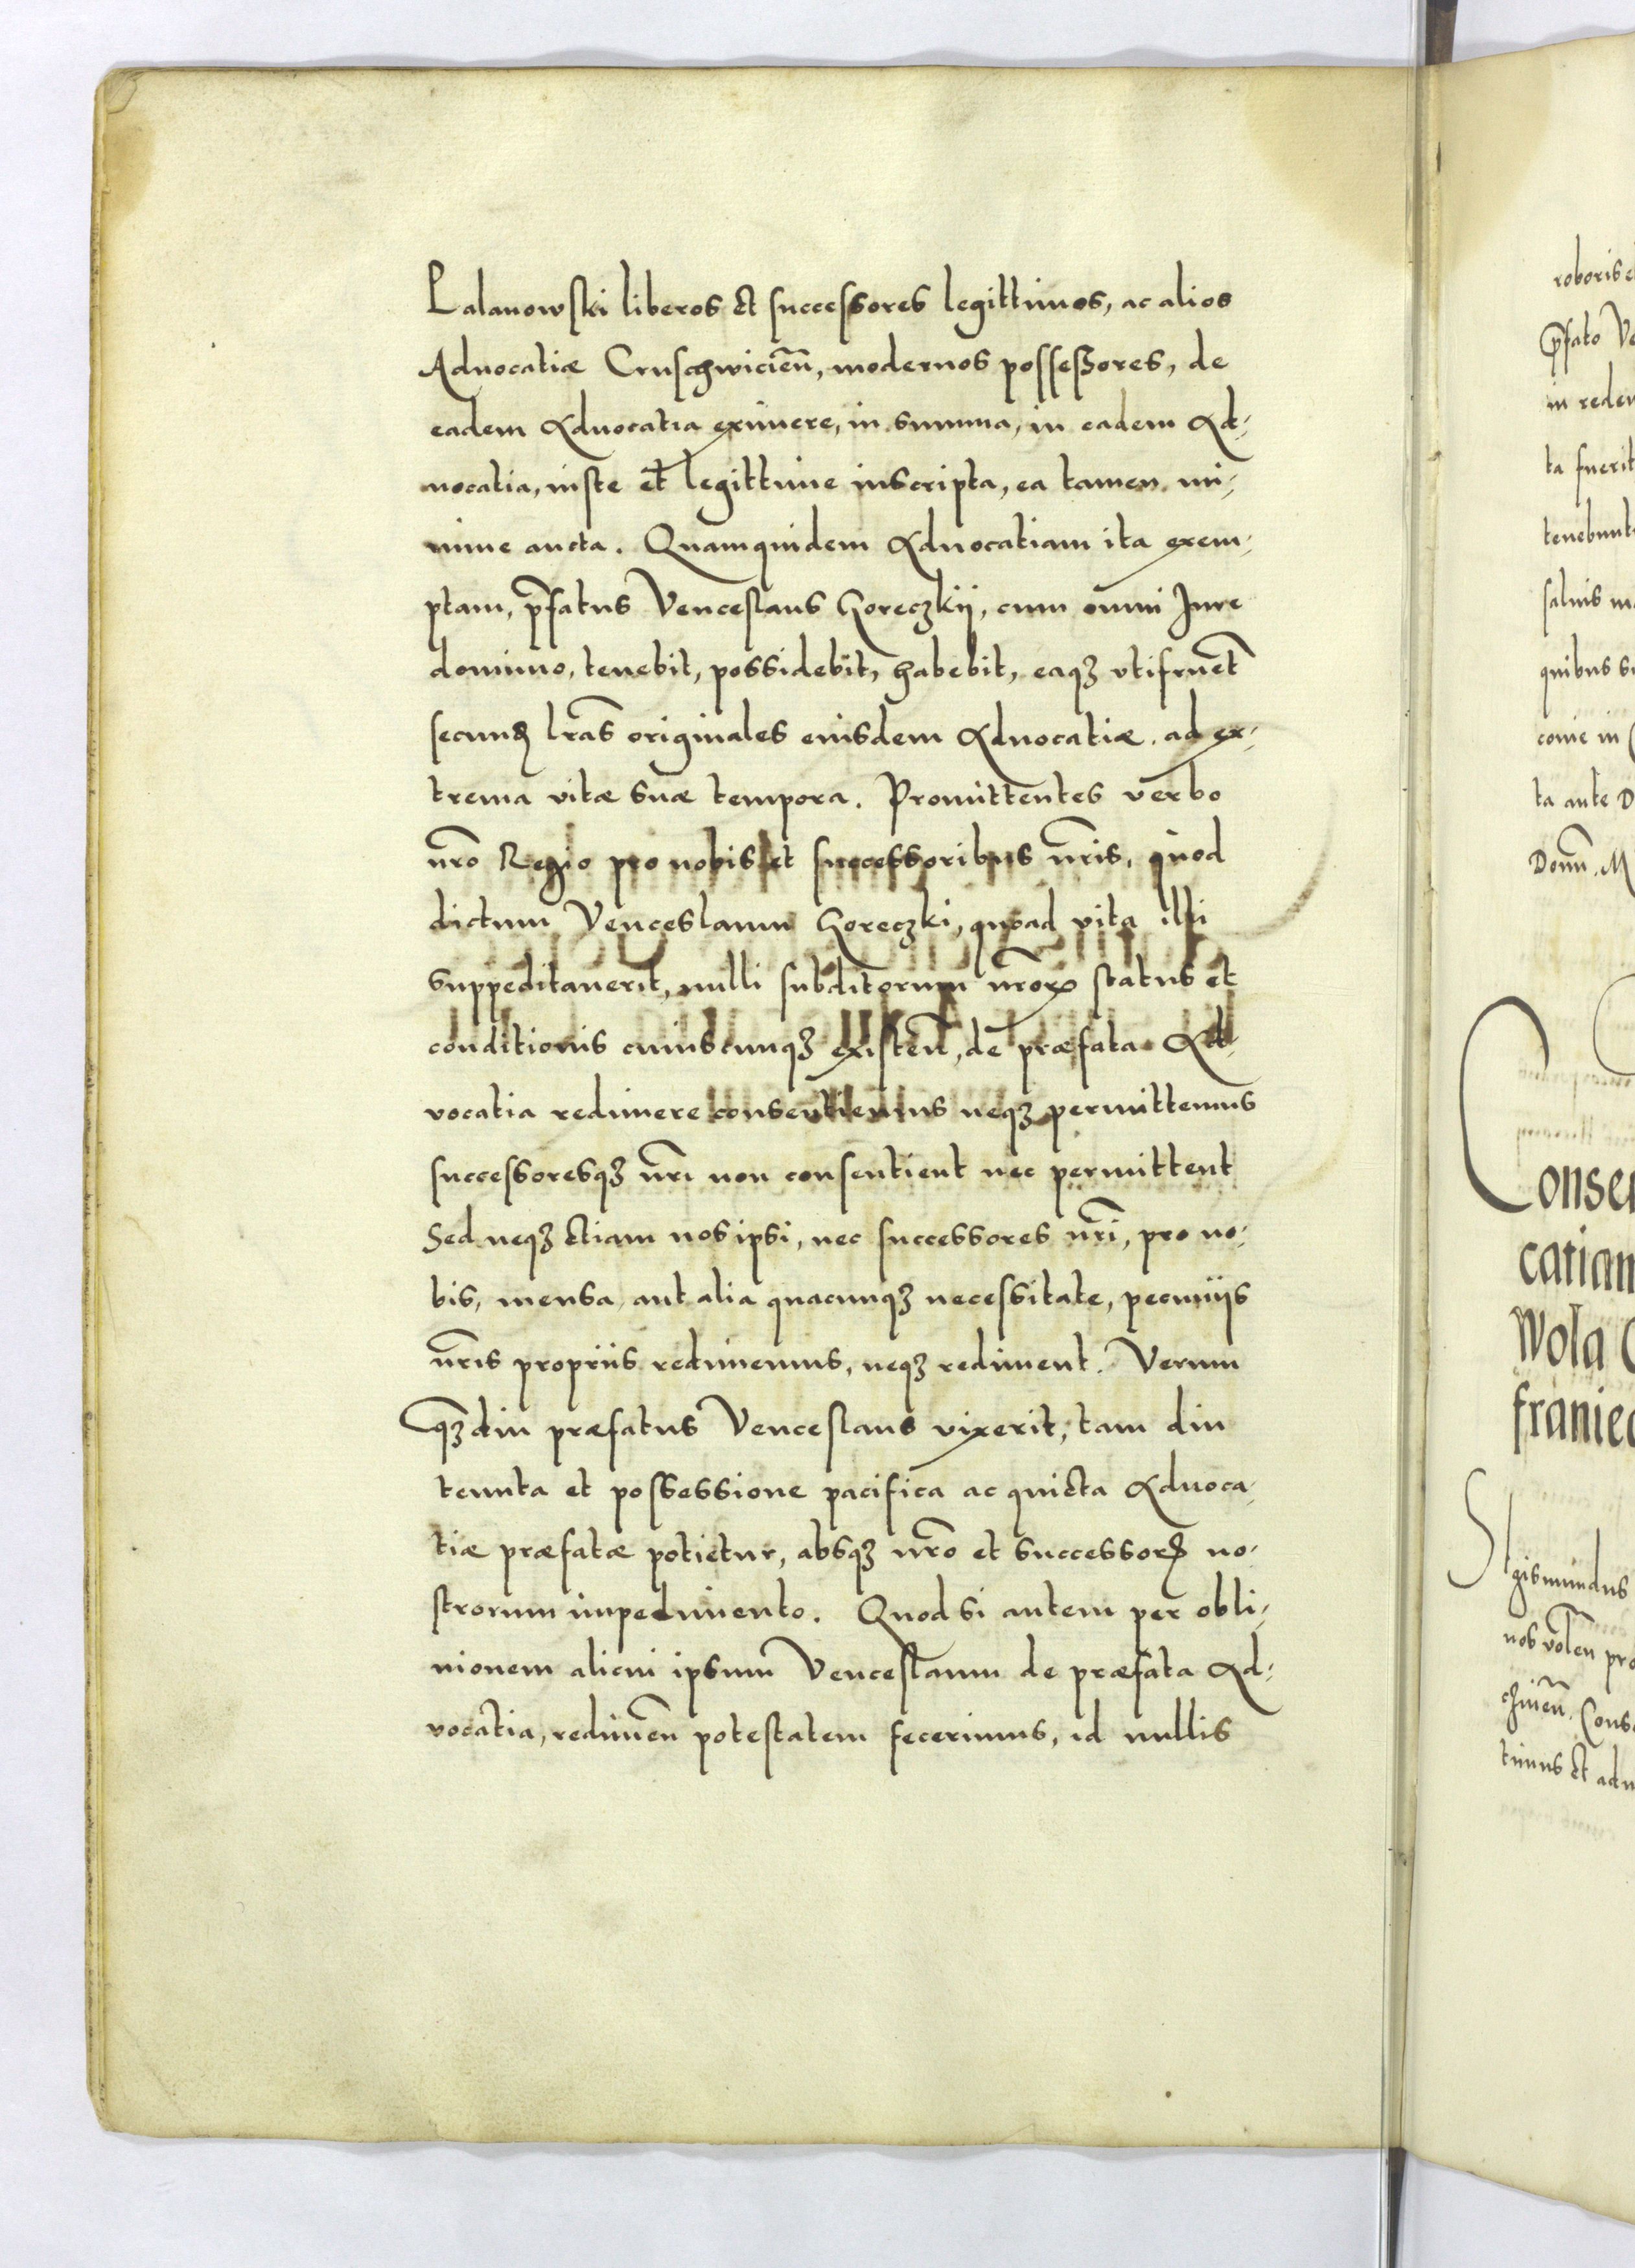 Lalanowski liberos et successores legittimos, ac alios
Aduocatiæ Cruschwicien̄, modernos possessores, de
eadem Aduocatia eximere, in summa, in eadem Ad-
uocatia, iuste et legittime inscripta, ea tamen mi-
nime aucta. Quamquidem Aduocatiam ita exem-
ptam, p̄fatus Venceslaus Goreczkij, cum omni Jure
dominio, tenebit, possidebit, habebit, eaqꝫ vtifruet̄
secunđ lr̄as originales eiusdem Aduocatiæ. ad ex-
trema vitæ suæ tempora. Promittentes verbo
nr̄o Regio pro nobis et successoribus nr̄is, quod
dictum Venceslaum Goreczki, quoad vita illi
suppeditauerit, nulli subditorum nr̄orꝝ status et
conditionis cuiuscunqꝫ existen̄, de præfata Ad-
vocatia redimere consentiemus neqꝫ permittemus
successoresqꝫ nr̄i non consentient nec permittent
Sed neqꝫ etiam nos ipsi, nec successores nr̄i, pro no-
bis, mensa, aut alia quacunqꝫ necessitate, pecuniis
nr̄is propriis redimemus, neqꝫ rediment. Verum
qꝫdiu præfatus Venceslaus vixerit, tam diu
tenuta et possessione pacifica ac quieta Aduoca-
tiæ præfatæ potietur, absqꝫ nr̄o et successorꝝ no-
strorum impedimento. Quod si autem per obli-
uionem alicui ipsum Venceslaum de præfata Ad-
vocatia, redimen̄ potestatem fecerimus, id nullis
roboris e
p̄fato Ve
in redem
ta fuerit
tenebunt
saluis
quibus su
ta ante D
Donn̄. M
Consen
catiam
Wola
franiec
Sigismundus
nos
Cons
timus et adm